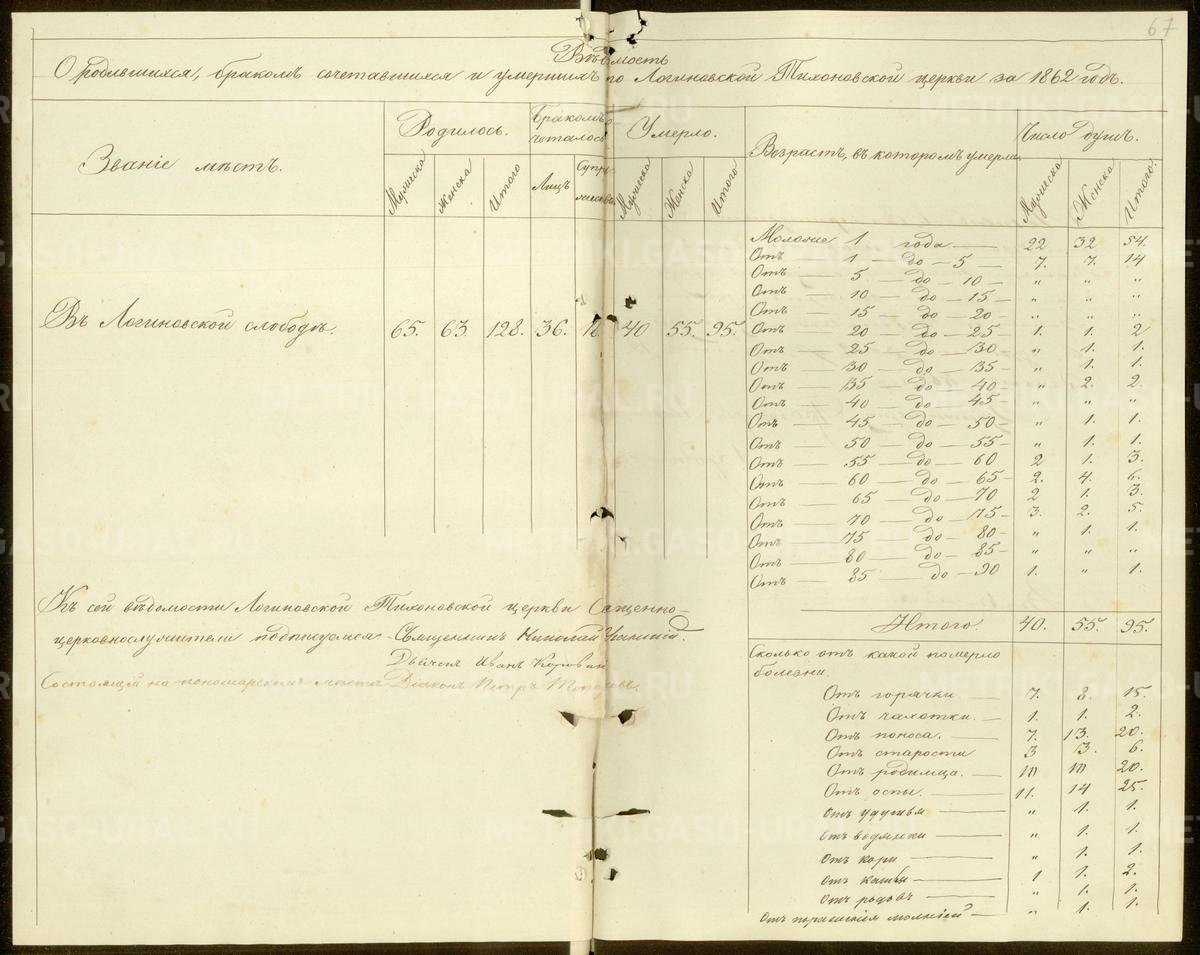 67
Вѣдомость
О родившихся, бракомъ сочетавшихся и умершихъ по Логиновской Тихоновской церкви за 1862 годъ.
Званіе мѣстъ.
Родилось.
Бракомъ сочеталось
Умерло.
Возрастъ, въ которомъ умерли
Число душъ.
Мужеска Женска Итого Лицъ Супружествъ Мужеска Женска Итого
Мужеска Женска Итого.
Въ Логиновской слободѣ. 65. 63 128. 36. 18. 40 55. 95.
Моложе 1 года — 22 32 54.
Отъ — 1 — до — 5 — 7. 7. 14
Отъ — 5 — до — 10 — " " "
Отъ — 10 — до — 15 — " " "
Отъ — 15 — до — 20 — " " "
Отъ — 20 — до — 25 — 1. 1. 2
Отъ — 25 — до — 30 — " 1. 1.
Отъ — 30 — до — 35 — " 1. 1.
Отъ — 35 — до — 40 — " 2. 2.
Отъ — 40 — до — 45 — " " "
Отъ — 45 — до — 50 — " 1. 1.
Отъ — 50 — до — 55 — " 1. 1.
Отъ — 55 — до — 60 2 1. 3.
Отъ — 60 — до — 65 — 2. 4. 6.
Отъ — 65 — до — 70 2 1. 3.
Отъ — 70 — до — 75 — 3. 2. 5.
Отъ — 75 — до — 80 — " 1. 1.
Отъ — 80 — до — 85 — " " "
Отъ — 85 — до — 90 1. " 1.
Итого. 40. 55. 95.
Къ сей вѣдомости Логиновской Тихоновской церкви Священно-
церковнослужители подписуемся Священникъ Николай
Дьячекъ Иванъ Коровин
Состоящій на пономарскомъ мѣстѣ Діаконъ Петръ
Сколько отъ какой померло
болезни.
Отъ горячки. — 7. 8. 15.
Отъ чахотки. — 1. 1. 2.
Отъ поноса. — 7. 13. 20.
Отъ старости 3 3. 6.
Отъ родимца. — 10 10 20.
Отъ оспы. — 11. 14 25.
Отъ удушья — " 1. 1.
Отъ водянки — " 1. 1.
Отъ кори — " 1. 1.
Отъ кашля — 1 1. 2.
Отъ родовъ — " 1. 1.
Отъ поражения молніей — " 1. 1.
METRIKI.GASO-URAL.RU